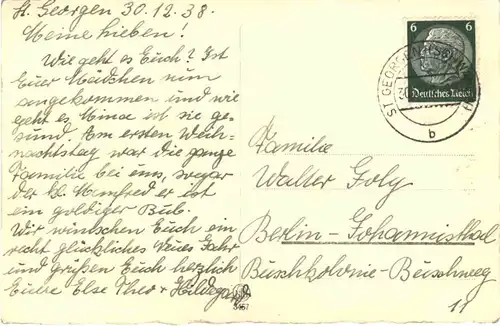 St. Georgen 30.12.38.
Meine Lieben!
Wie geht es Euch? Ist
Euer Mädchen nun
angekommen und wie
geht es, Mina ist sie ge-
sund. Am ersten Weih-
nachtstag war die ganze
Familie bei uns, sogar
der kl. Manfred er ist
ein goldiger Bub.
Wir wünschen Euch ein
recht glückliches Neues Jahr
und grüßen Euch herzlich
Eure Else Theo + Hildegard
6 6
Deutsches Reich
ST GEORGEN (SCHWARZW
b
Familie
Walter Foly
Berlin-Johannisthal
Buschkolonie-Buschweg
11